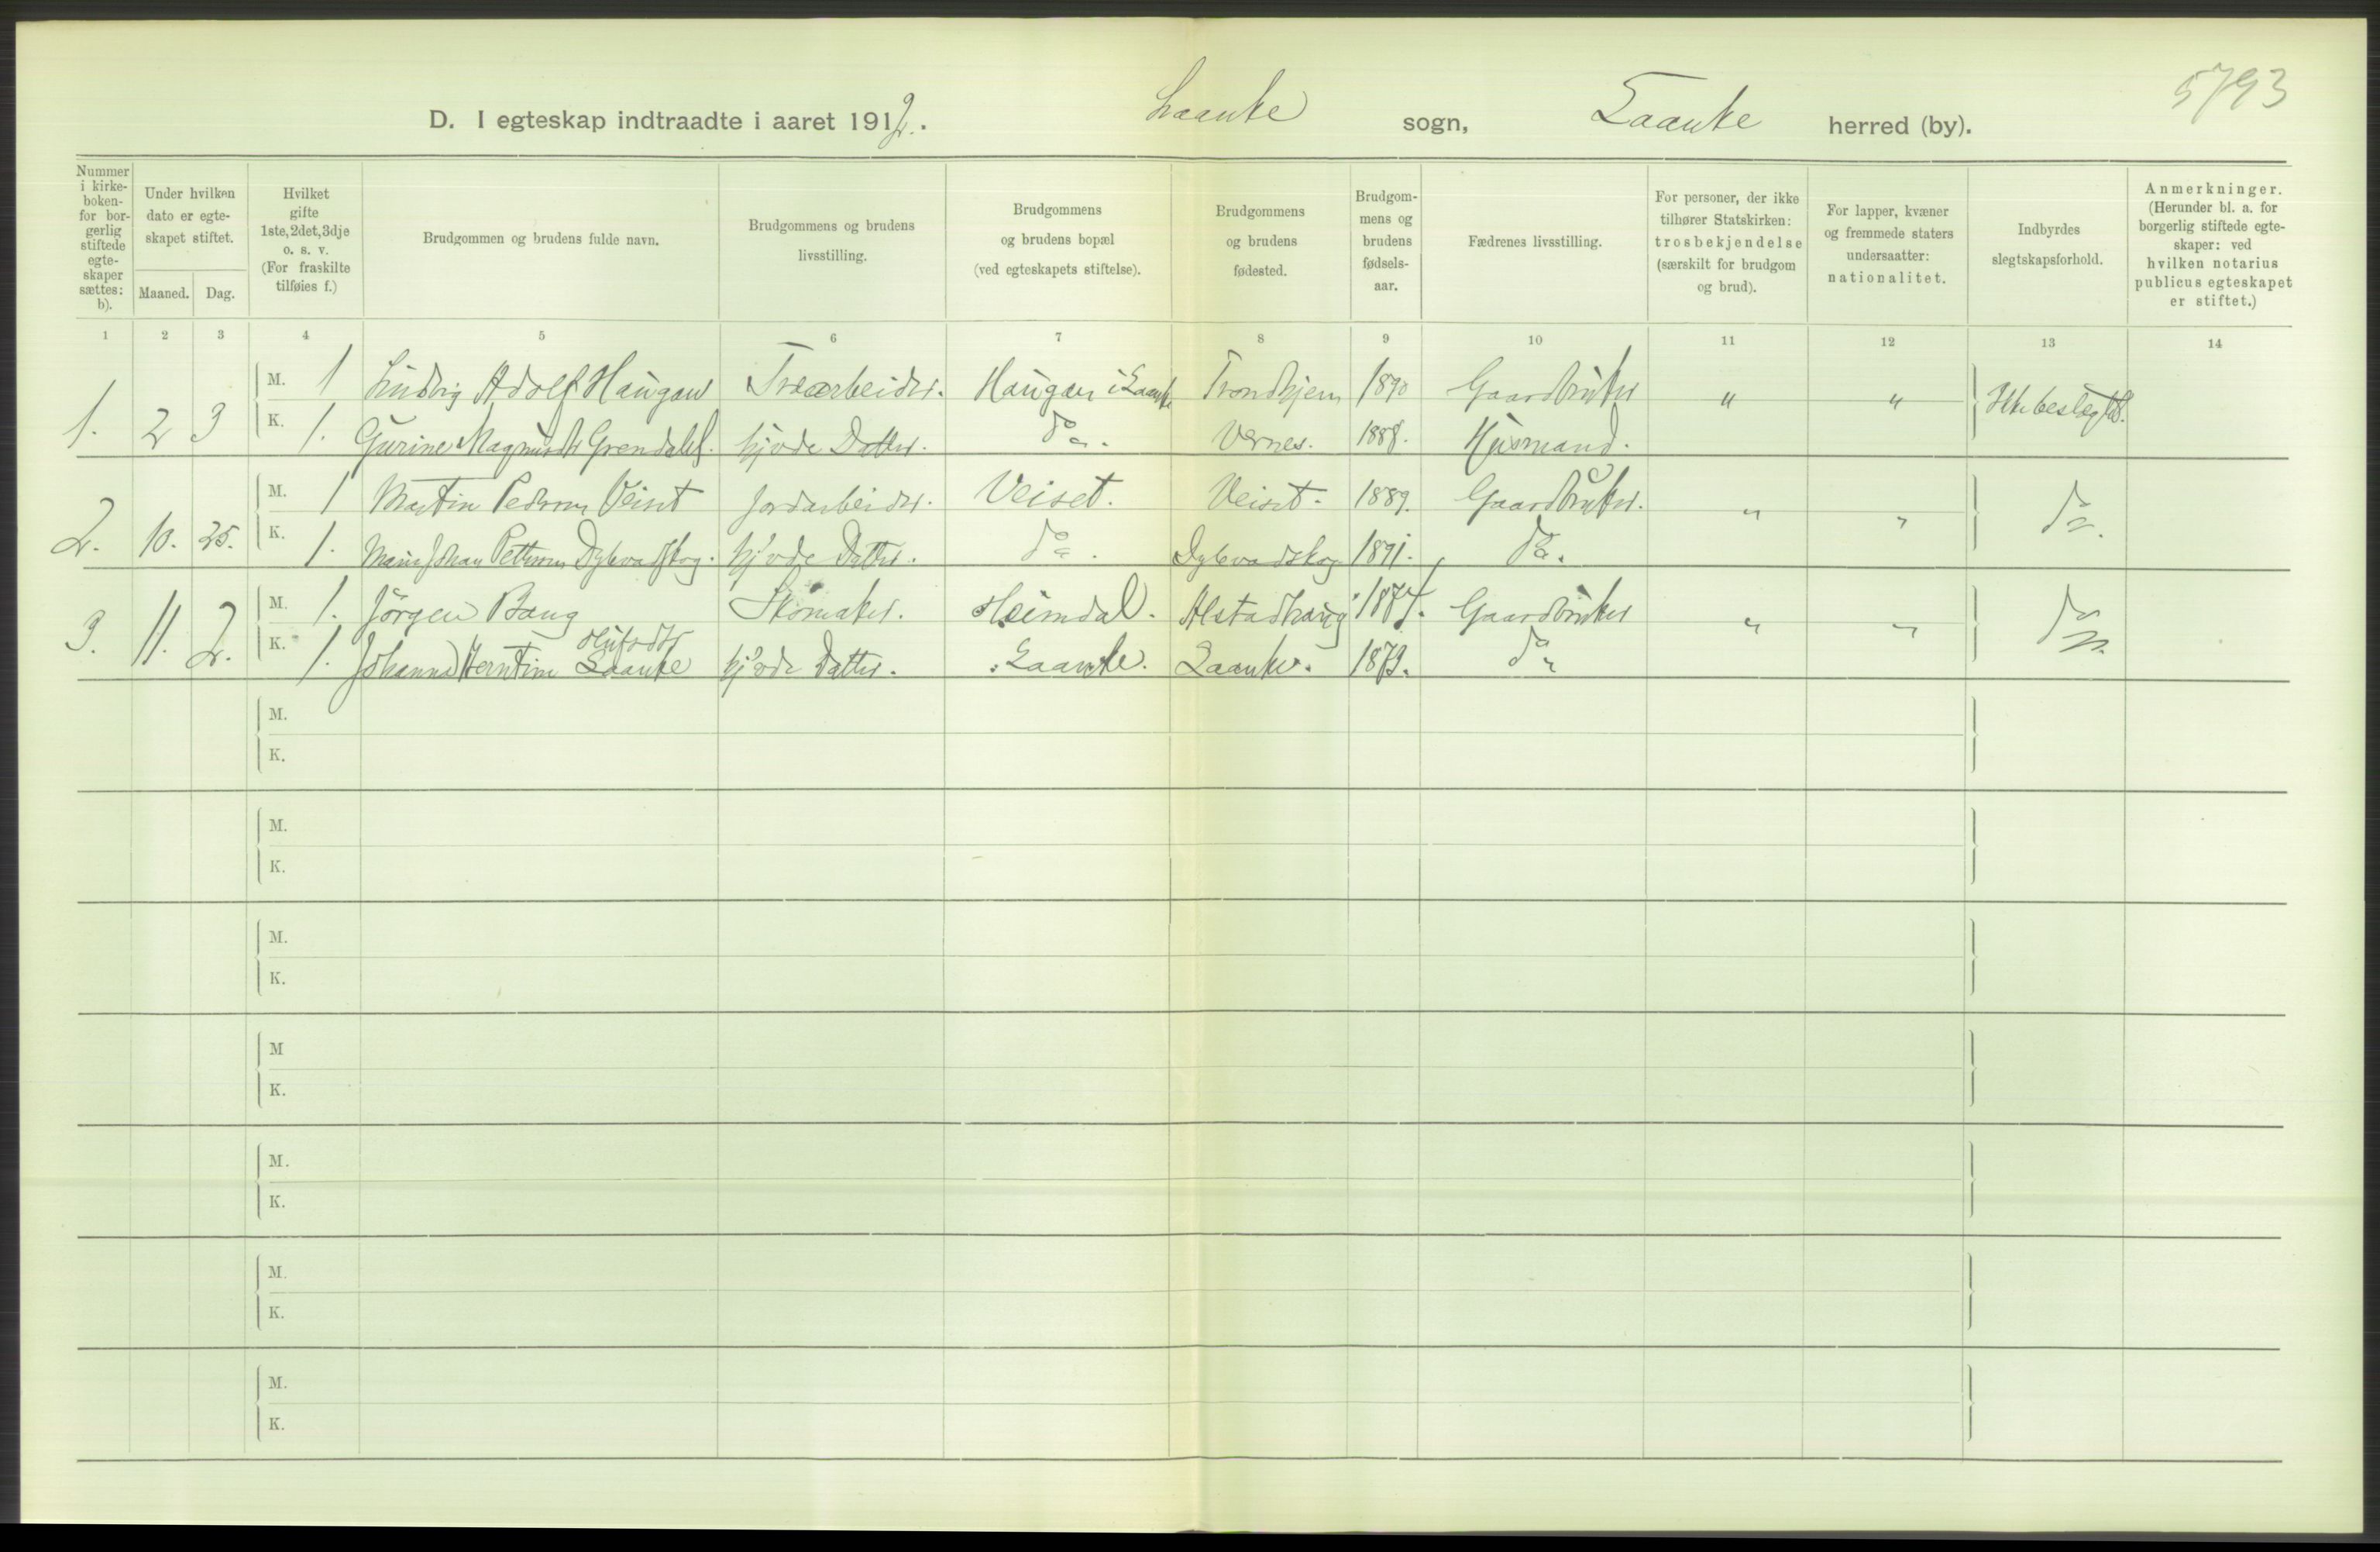 5793
D. I egteskap indtraadte i aaret 1912. Laanke sogn, Laanke herred (by).
Nummer i kirke- boken- for bor- gerlig stiftede egte- skaper sættes: b).
Under hvilken dato er egte- skapet stiftet.
Maaned. Dag.
Hvilket gifte 1ste, 2det, 3dje o. s. v. (For fraskilte tilføies f.)
Brudgommen og brudens fulde navn.
Brudgommens og brudens livsstilling.
Brudgommens og brudens bopæl (ved egteskapets stiftelse).
Brudgommens og brudens fødested.
Brudgom- mens og brudens fødsels- aar.
Fædrenes livsstilling.
For personer, der ikke tilhører Statskirken: trosbekjendelse (særskilt for brudgom og brud).
For lapper, kvæner og fremmede staters undersaatter: nationalitet.
Indbyrdes slegtskapsforhold.
Anmerkninger. (Herunder bl. a. for borgerlig stiftede egte- skaper: ved hvilken notarius publicus egteskapet er stiftet.)
1 2 3 4 5 6 7 8 9 10 11 12 13 14
M. 1 Ludvig Adolf Haugan Træarbeider. Haugan i Laanke Trondhjem 1890 Gaardbruker " "
1. 2 3 K. 1. Gurine Grendahl. hjvde Datter. do. Vernes. 1888. Husmand.
M. 1 Martin Veiset Jordarbeider. Veiset. Veiset. 1889. Gaardbruker. " " do.
2. 10. 25. K. 1. Dybvadskog. hjvde Datter. do. Dybvadskog 1891. do.
M. 1. Jörgen Bang Skomaker. Heimdal. Alstadhaug 1874. Gaardbruker " " do.
3. 11. 2. K. 1. Johanna Laanke hjvde Datter. Laanke. Laanke. 1879. do
M.
K.
M.
K.
M.
K.
M
K.
M.
K.
M.
K.
M.
K.